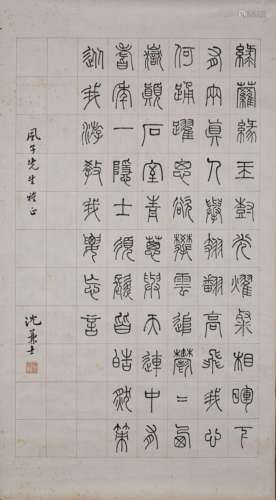 綠蘿緣玉樹光燿粲相暉下
有兩真人舉翅翻高飛我心
何踊躍思欲攀雲追鬱二西
嶽顛石室青蔥與天連中有
耆年一隱士須髮皆皓然策
從我游教我要忘言
風子先生雅正
沈兼士